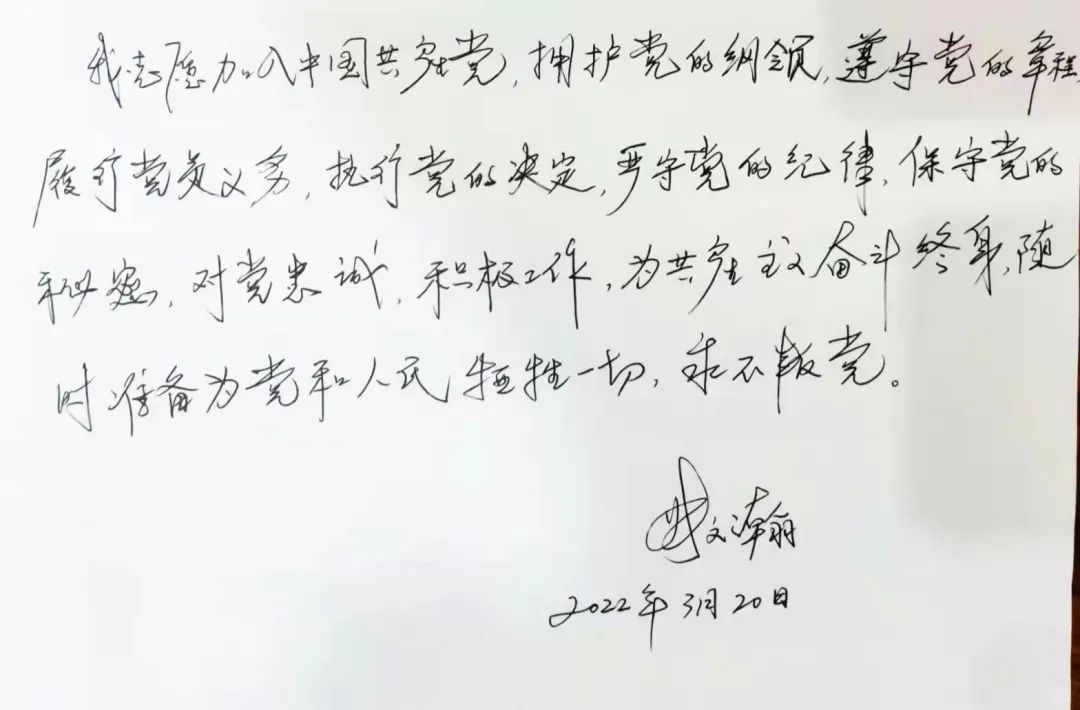 我志愿加入中国共产党，拥护党的纲领，遵守党的章程
履行党员义务，执行党的决定，严守党的纪律，保守党的
秘密，对党忠诚，积极工作，为共产主义奋斗终身，随
时准备为党和人民牺牲一切，永不叛党。
文瀚
2022年3月20日